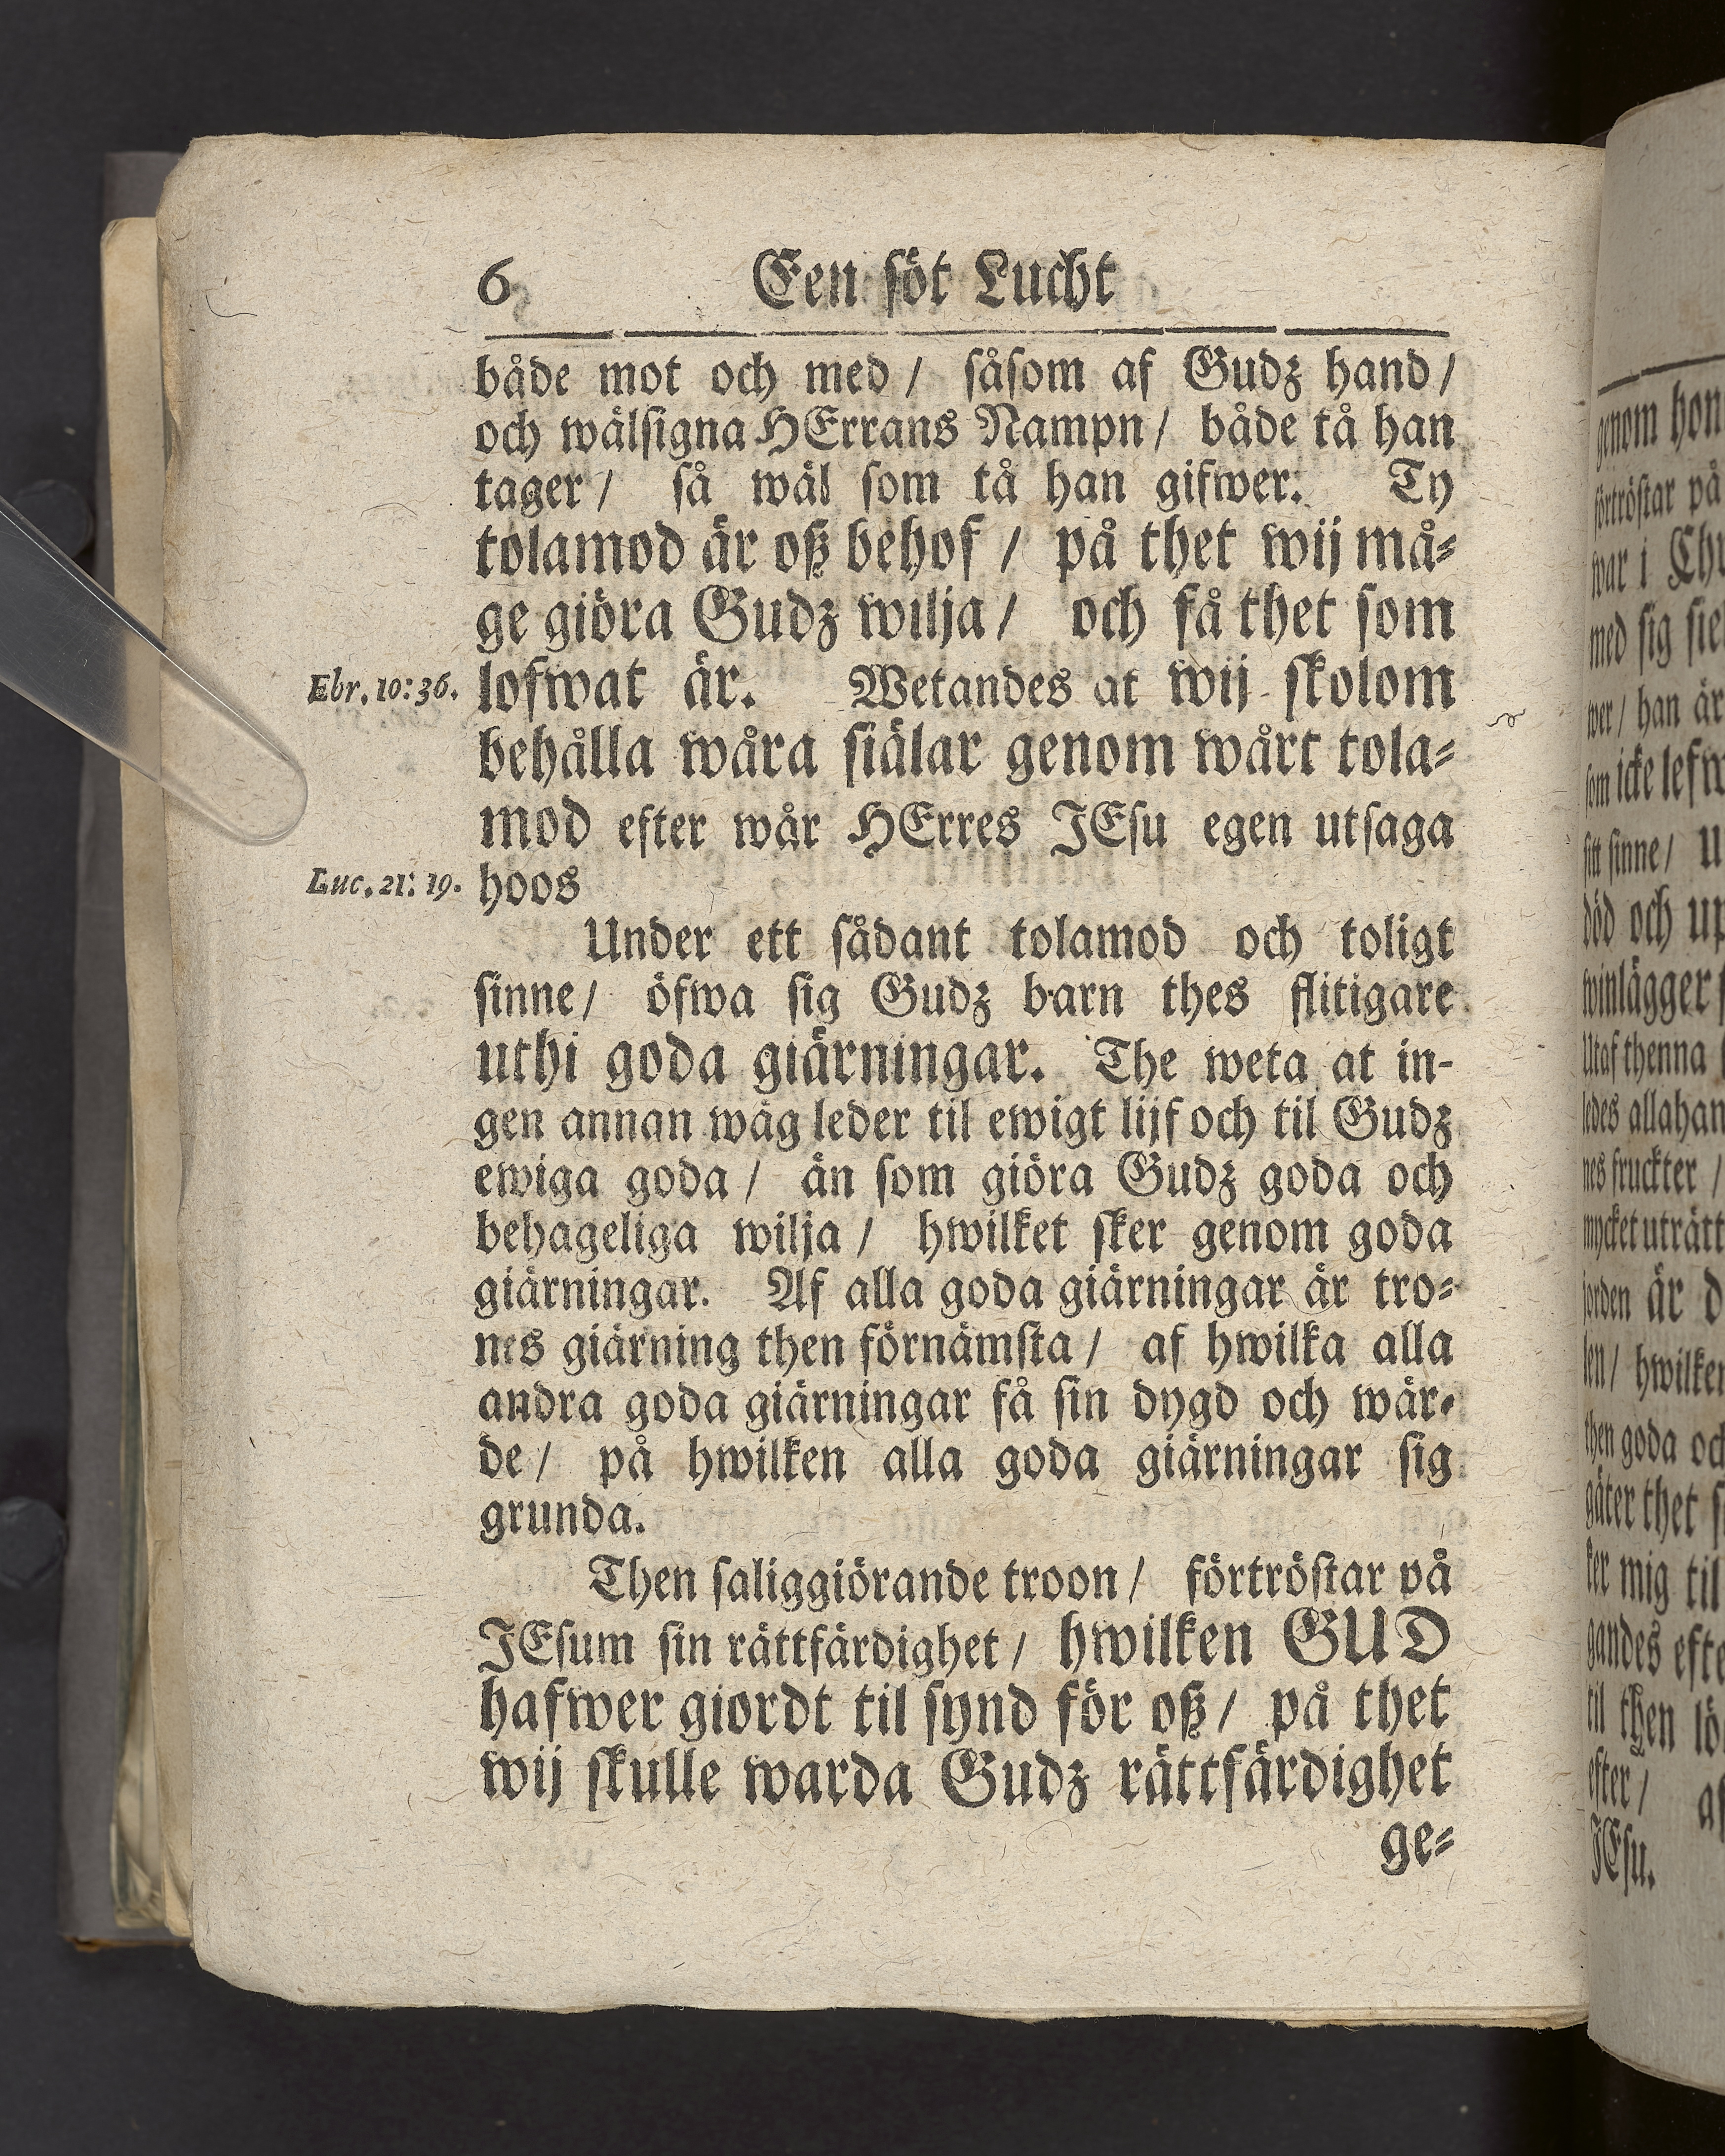 6 Een söt Lucht
både mot och med / såsom af Gudz hand /
och wälsigna HErrans Nampn / både tå han
tager / så wäl som tå han gifwer: Ty
tolamod är oß behof / på thet wij må-
ge giöra Gudz wilja / och få thet som
Ebr. 10: 36. lofwat är. Wetandes at wij skolom
behålla wåra siälar genom wårt tola-
mod efter wår HErres JEsu egen utsaga
Luc. 21: 19. hoos
Under ett sådant tolamod och toligt
sinne / öfwa sig Gudz barn thes flitigare
uthi goda giärningar. The weta at in-
gen annan wäg leder til ewigt lijf och til Gudz
ewiga goda / än som giöra Gudz goda och
behageliga wilja / hwilket sker genom goda
giärningar. Af alla goda giärningar är tro-
nes giärning then förnämsta / af hwilka alla
andra goda giärningar få sin dygd och wär-
de / på hwilken alla goda giärningar sig
grunda.
Then saliggiörande troon / förtröstar på
JEsum sin rättfärdighet / hwilken GUD
hafwer giordt til synd för oß / på thet
wij skulle warda Gudz rättfärdighet
ge-
genom hon
förtröstar på
war i Chr
med sig siel
wer / han är
som icke lefw
sitt sinne / U
död och up
winlägger s
Utaf thenna
ledes allahan
nes fruckter /
mycket uträtt
jorden är d
len / hwilken
then goda och
gäter thet s
ker mig til
gandes efte
til then lö
efter / af
JEsu.